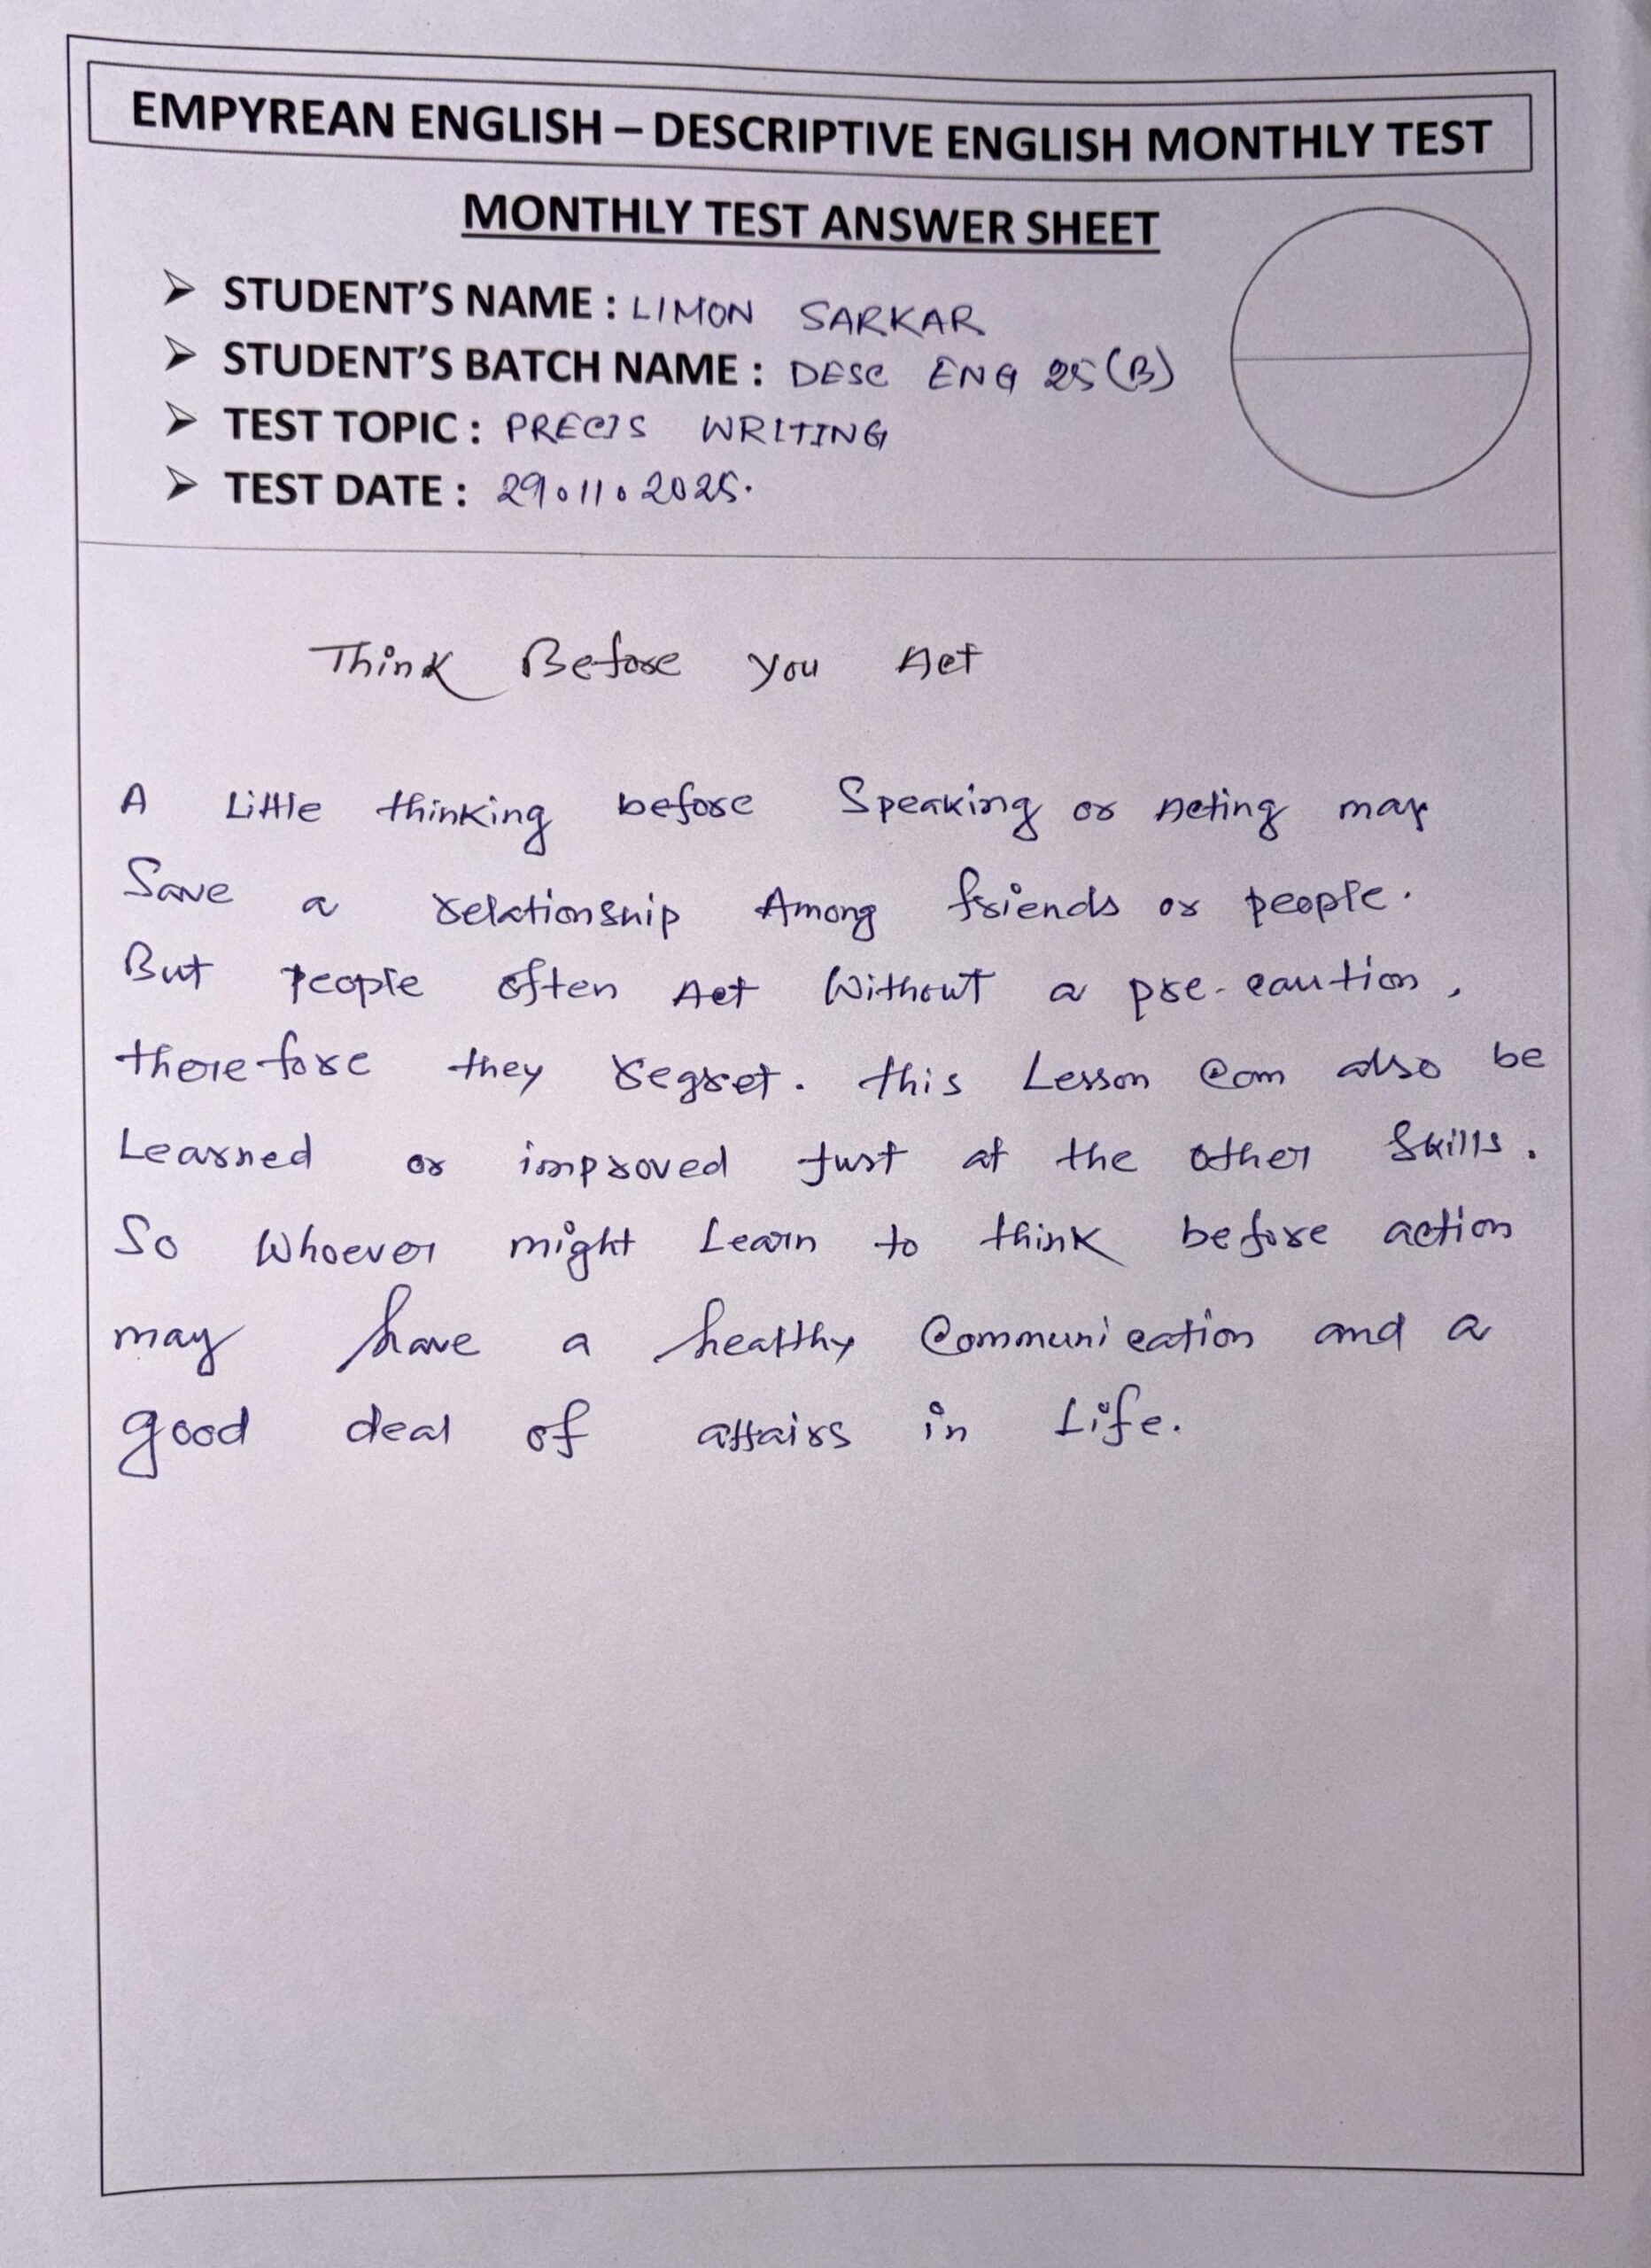 EMPYREAN ENGLISH – DESCRIPTIVE ENGLISH MONTHLY TEST
MONTHLY TEST ANSWER SHEET
➢ STUDENT'S NAME : LIMON SARKAR
➢ STUDENT'S BATCH NAME : DESC ENG 25(B)
➢ TEST TOPIC : PRECIS WRITING
➢ TEST DATE : 29.11.2025.
Think Before you Act
A Little thinking before Speaking or Acting may
Save a relationship Among friends or people.
But People often Act Without a pre-caution,
therefore they regret. this Lesson Can also be
Learned or improved just at the other Skills.
So Whoever might Learn to think before action
may have a healthy Communication and a
good deal of affairs in Life.